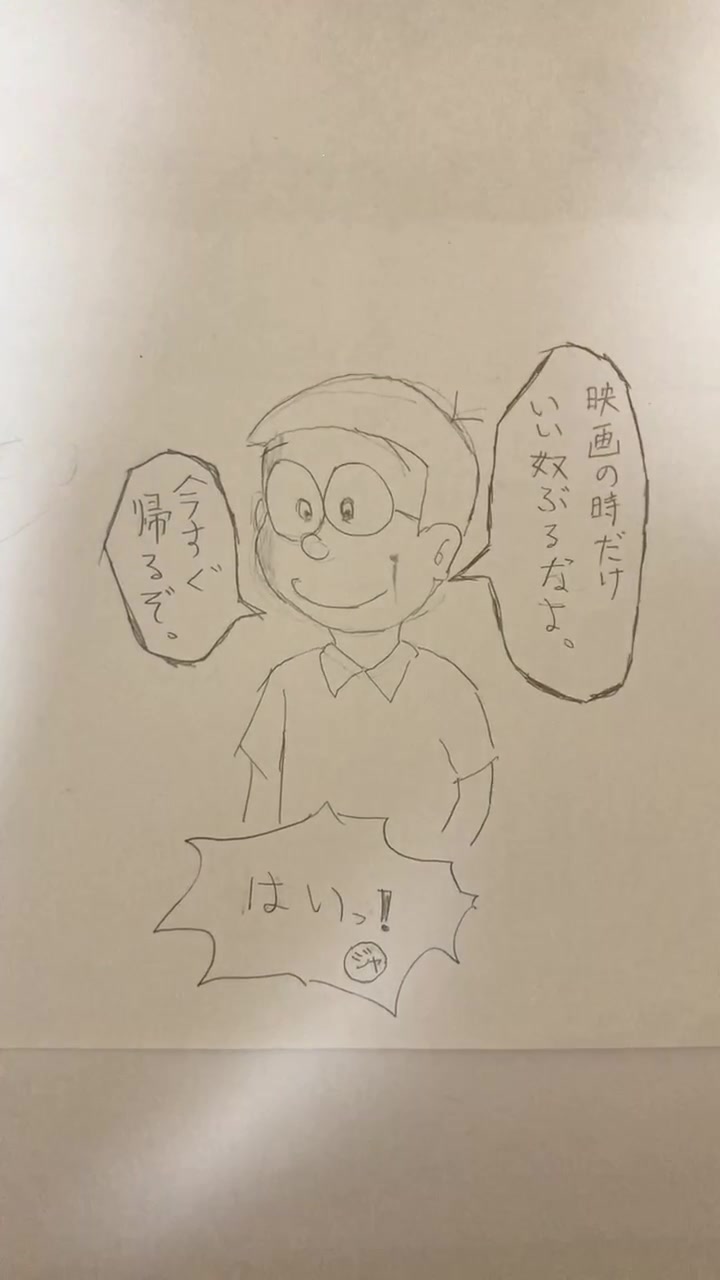 映画の時だけ
いい奴ぶるなよ。
今すぐ
帰るぞ。
はいっ!
ジャ